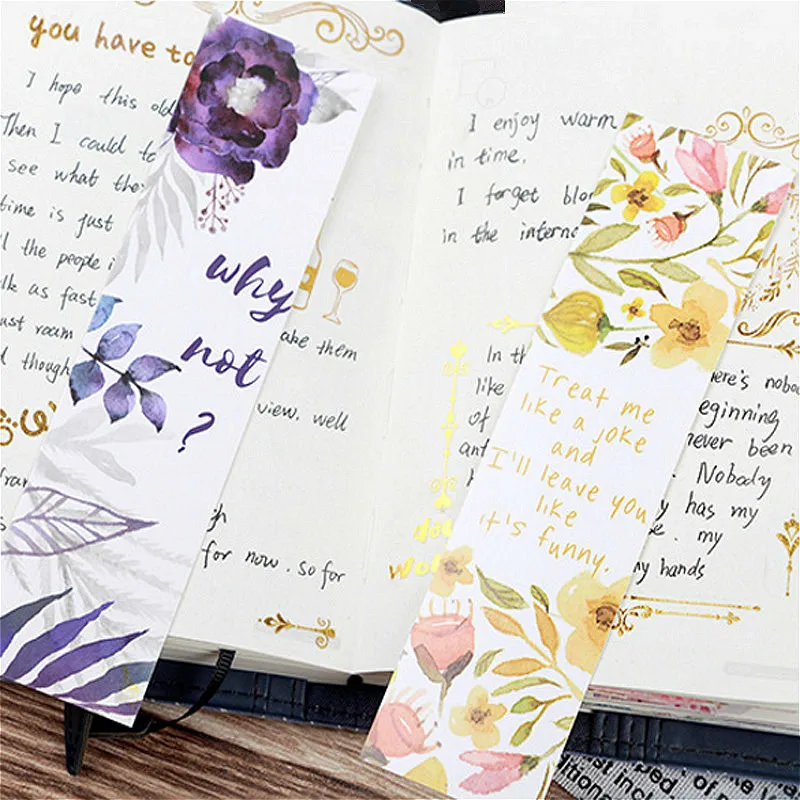 you have to
I hope this old
Then I could to
see what the
time is just
the people i
lk as fast
ust room
d though
why
not
?
ake them
view. well
for now. so for
I enjoy warm
in time.
I forget blo
in the interne
In th
like
of
ant
h
Treat me
like a joke
and
I'll leave you
like
it's funny.
here's nobo
eginning
never been
Nobody
y has my
e. my
my hands